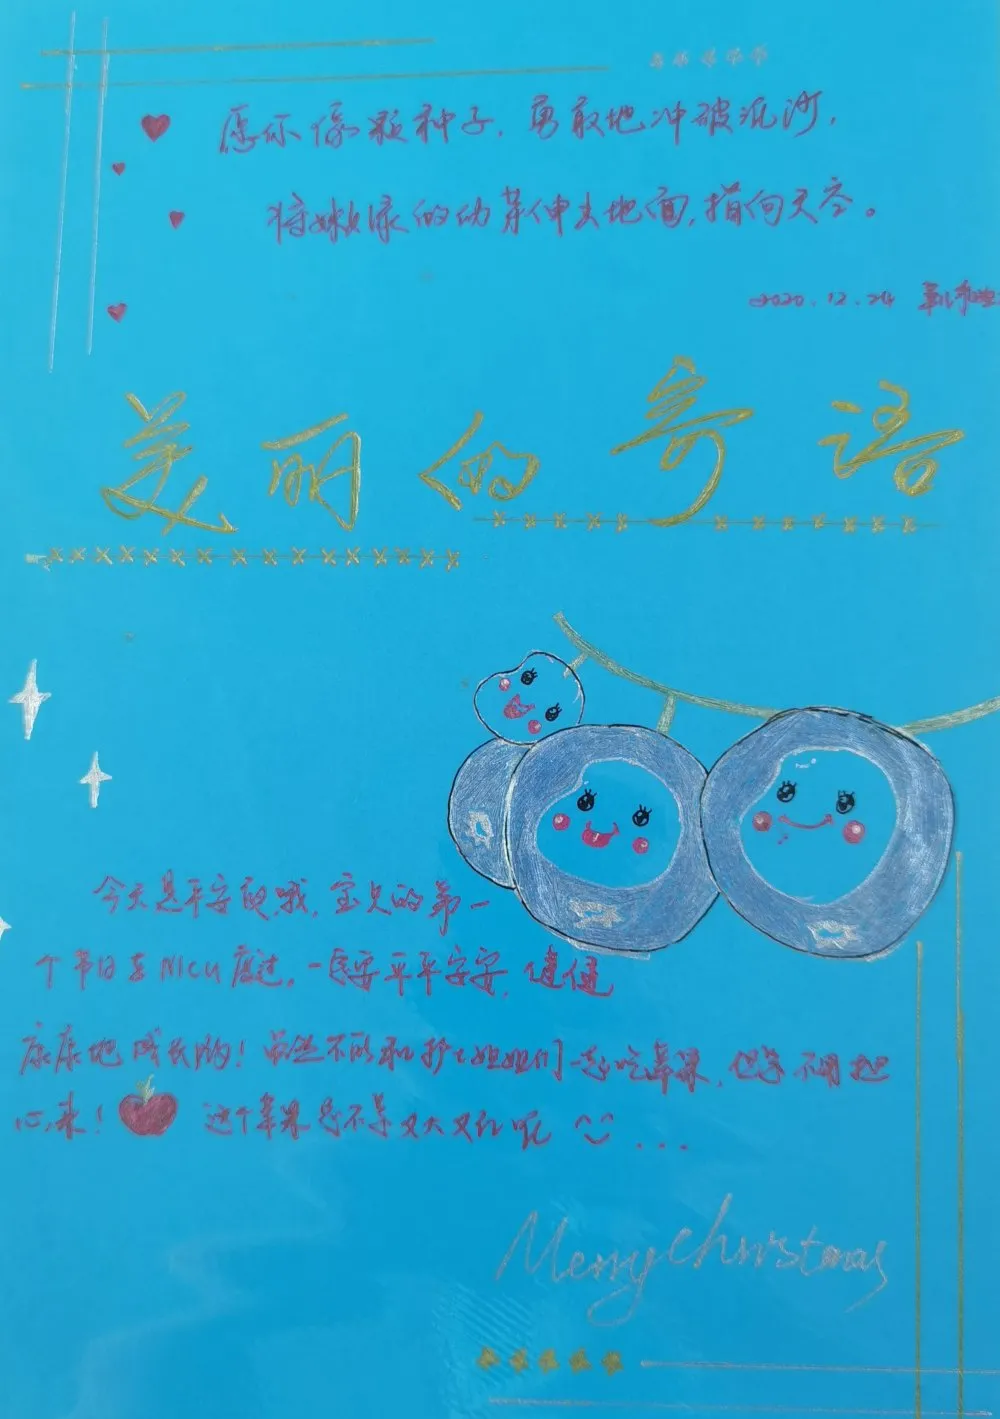 愿你像颗种子，勇敢地冲破泥沙，
将嫩绿的幼芽伸出地面，指向天空。
2020.12.24
美丽的寄语
今天是平安夜哦，宝贝的第一
个节日在NICU度过，一定要平平安安，健健
康康地成长哟！虽然不能和护士姐姐们一起吃苹果，但要不用担
心，来！这个苹果是不是又大又红呢 ...
Merry Christmas